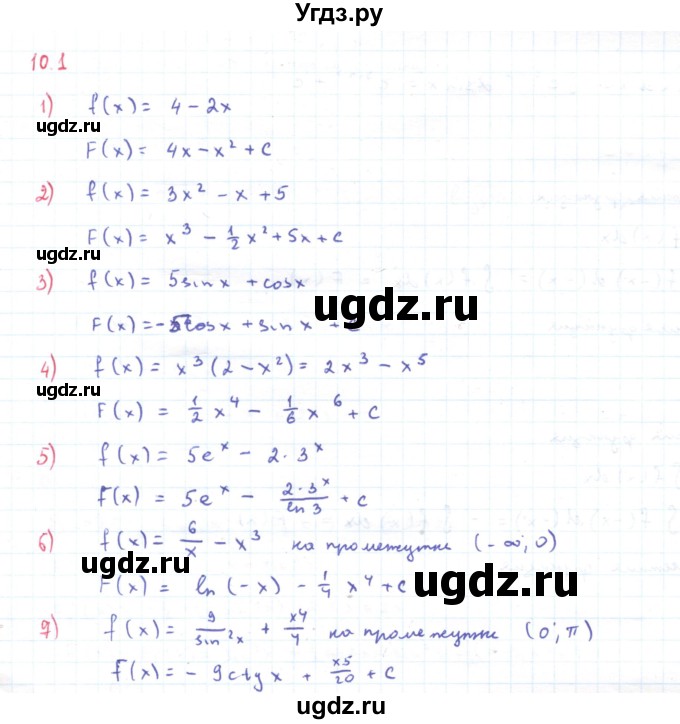 Угдз.ру
10.1
1) f(x) = 4 - 2x
ugdz.ru
F(x) = 4x - x² + C
2) f(x) = 3x² - x + 5
ugdz.ru
F(x) = x³ - 1/2 x² + 5x + C
3) f(x) = 5sin x + cos x
ugdz.ru
F(x) = -5cos x + sin x + C
4) f(x) = x³(2 - x²) = 2x³ - x⁵
ugdz.ru
F(x) = 1/2 x⁴ - 1/6 x⁶ + C
5) f(x) = 5e^x - 2·3^x
ugdz.ru
F(x) = 5e^x - 2·3^x/ln 3 + C
6) f(x) = 6/x - x³ на промежутке (-∞; 0)
ugdz.ru
F(x) = ln(-x) - 1/4 x⁴ + C
7) f(x) = 9/sin²x + x⁴/4 на промежутке (0; π)
ugdz.ru
F(x) = - 9ctg x + x⁵/20 + C
ugdz.ru